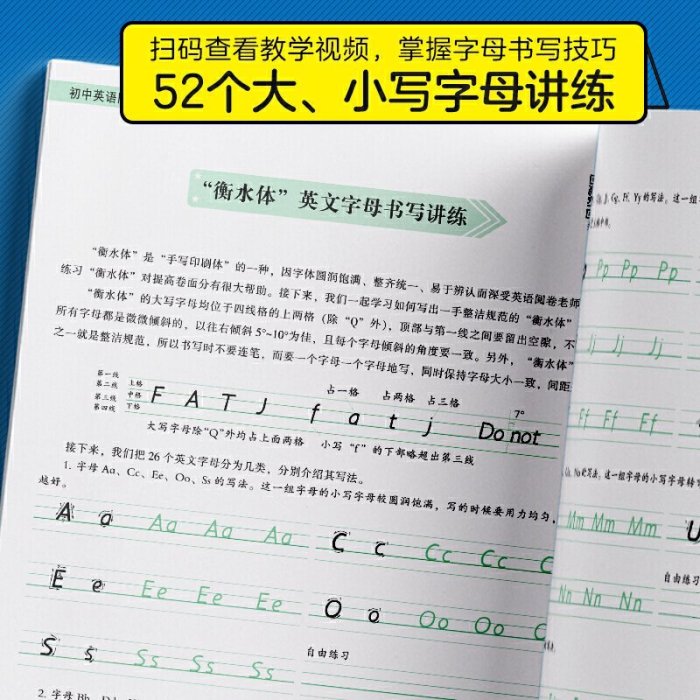 扫码查看教学视频，掌握字母书写技巧
52个大、小写字母讲练
初中英语
“衡水体”英文字母书写讲练
“衡水体”是“手写印刷体”的一种，因字体圆润饱满、整齐统一、易于辨认而深受英语阅卷老师
练习“衡水体”对提高卷面分有很大帮助。接下来，我们一起学习如何写出一手整洁规范的“衡水体”
“衡水体”的大写字母均位于四线格的上两格（除“Q”外），顶部与第一线之间要留出空隙，不
所有字母都是微微倾斜的，以往右倾斜5°~10°为佳，且每个字母倾斜的角度要一致。另外，“衡水体”
之一就是整洁规范，所以书写时不要连笔，而要一个字母一个字母地写，同时保持字母大小一致，间距
第一线
第二线
第三线
第四线
上格
中格
下格
占一格 占两格 占三格
7°
F A T J f a t j Do not
大写字母除“Q”外均占上面两格 小写“f”的下部略超出第三线
接下来，我们把26个英文字母分为几类，分别介绍其写法。
1. 字母Aa、Cc、Ee、Oo、Ss的写法。这一组字母的小写字母较圆润饱满，写的时候要用力均匀，
越好。
A a Aa Aa Aa
C c Cc Cc C
E e Ee Ee Ee
O o Oo Oo O
S s Ss Ss Ss
自由练习
2. 字母Bb、D
Jj、Gg、Pf、Yy的写法。这一组
Pp Pp Pp
Jj Jj
Ff Ff Ff
的写法。这一组字母的小写字母转
Mm Mm Mm
U
自由练习
Nn Nn Nn